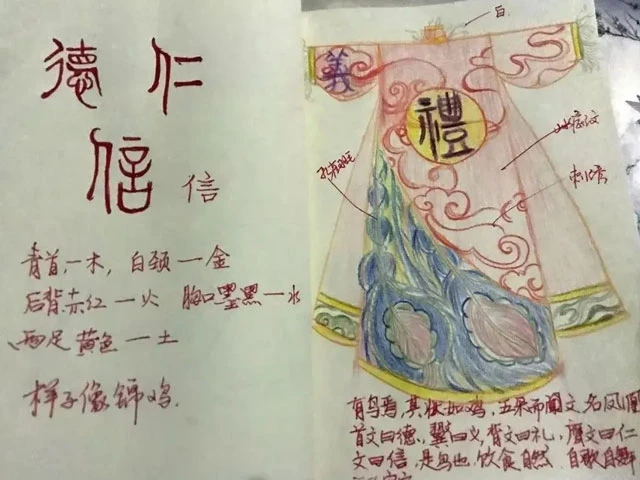 德 仁
信 信
青首一木，白颈一金
后背赤红一火 胸口墨黑一水
两足黄色一土
样子像锦鸡.
白
義
禮
有鸟焉，其状如鸡，五采而文，名凤凰
首文曰德、翼曰义，背文曰礼，膺文曰仁
文曰信，是鸟也，饮食自然 自歌自舞